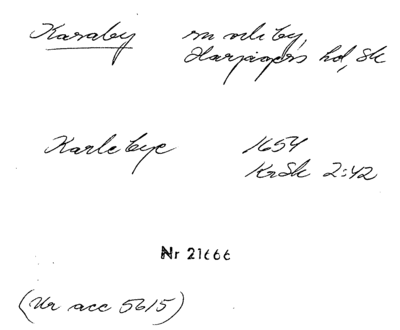 Karaby sn o by,
Harjagers hd, Sk
Karlebye 1654
KrSk 2:42
Nr 21666
(Ur acc 5615)